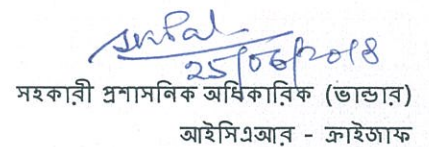 25/06/2018
সহকারী প্রশাসনিক অধিকারিক (ভান্ডার)
আইসিএআর - ক্রাইজাফ